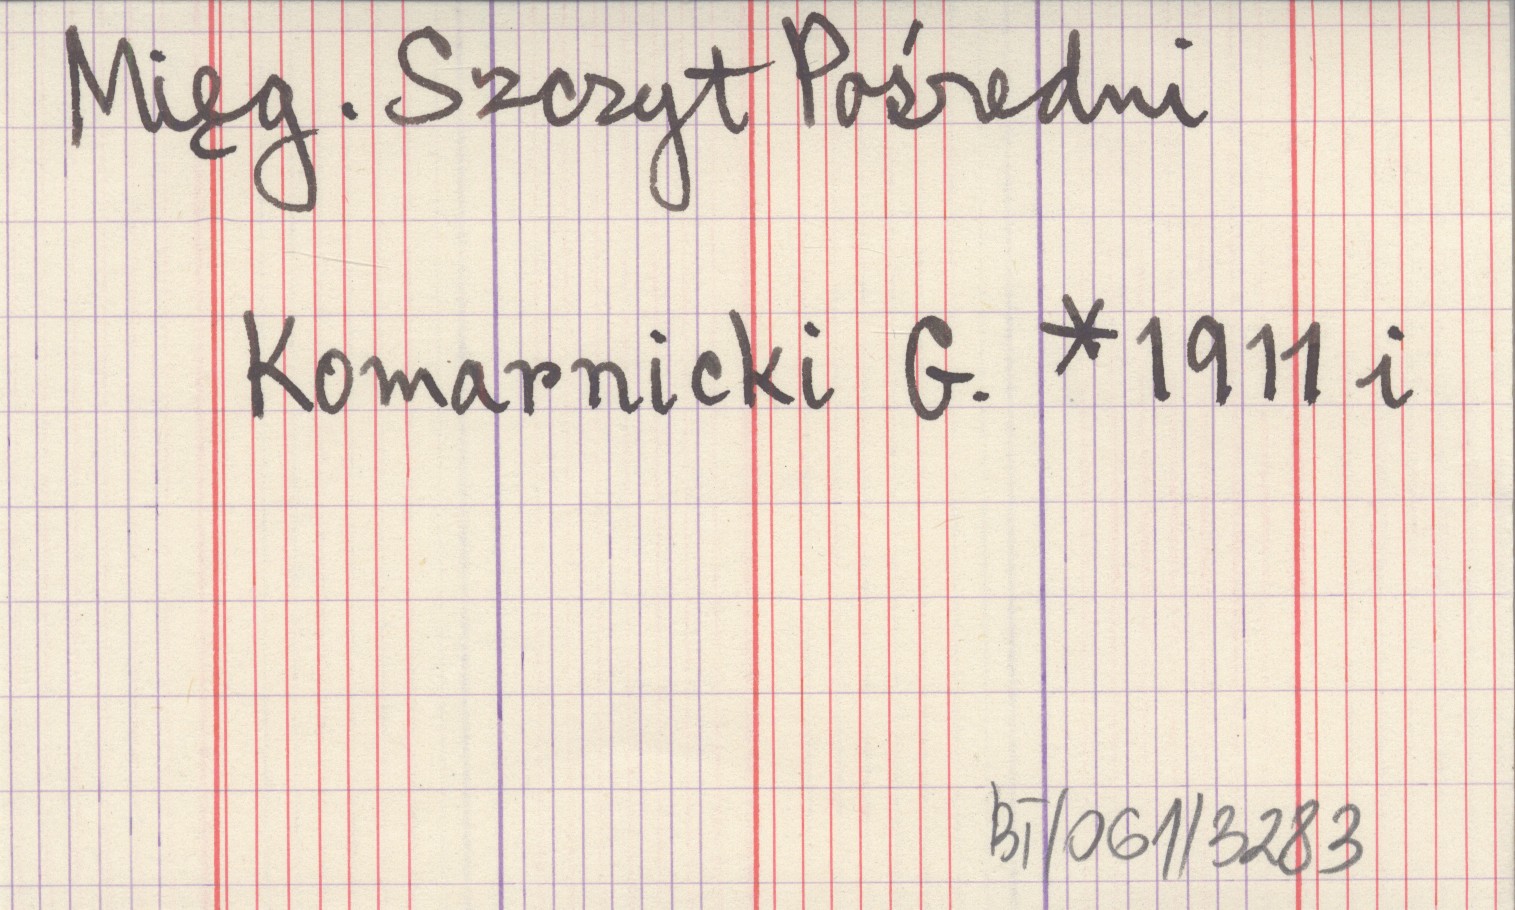 Mięg. Szczyt Pośredni
Komarnicki G. *1911 i
BT/061/3283